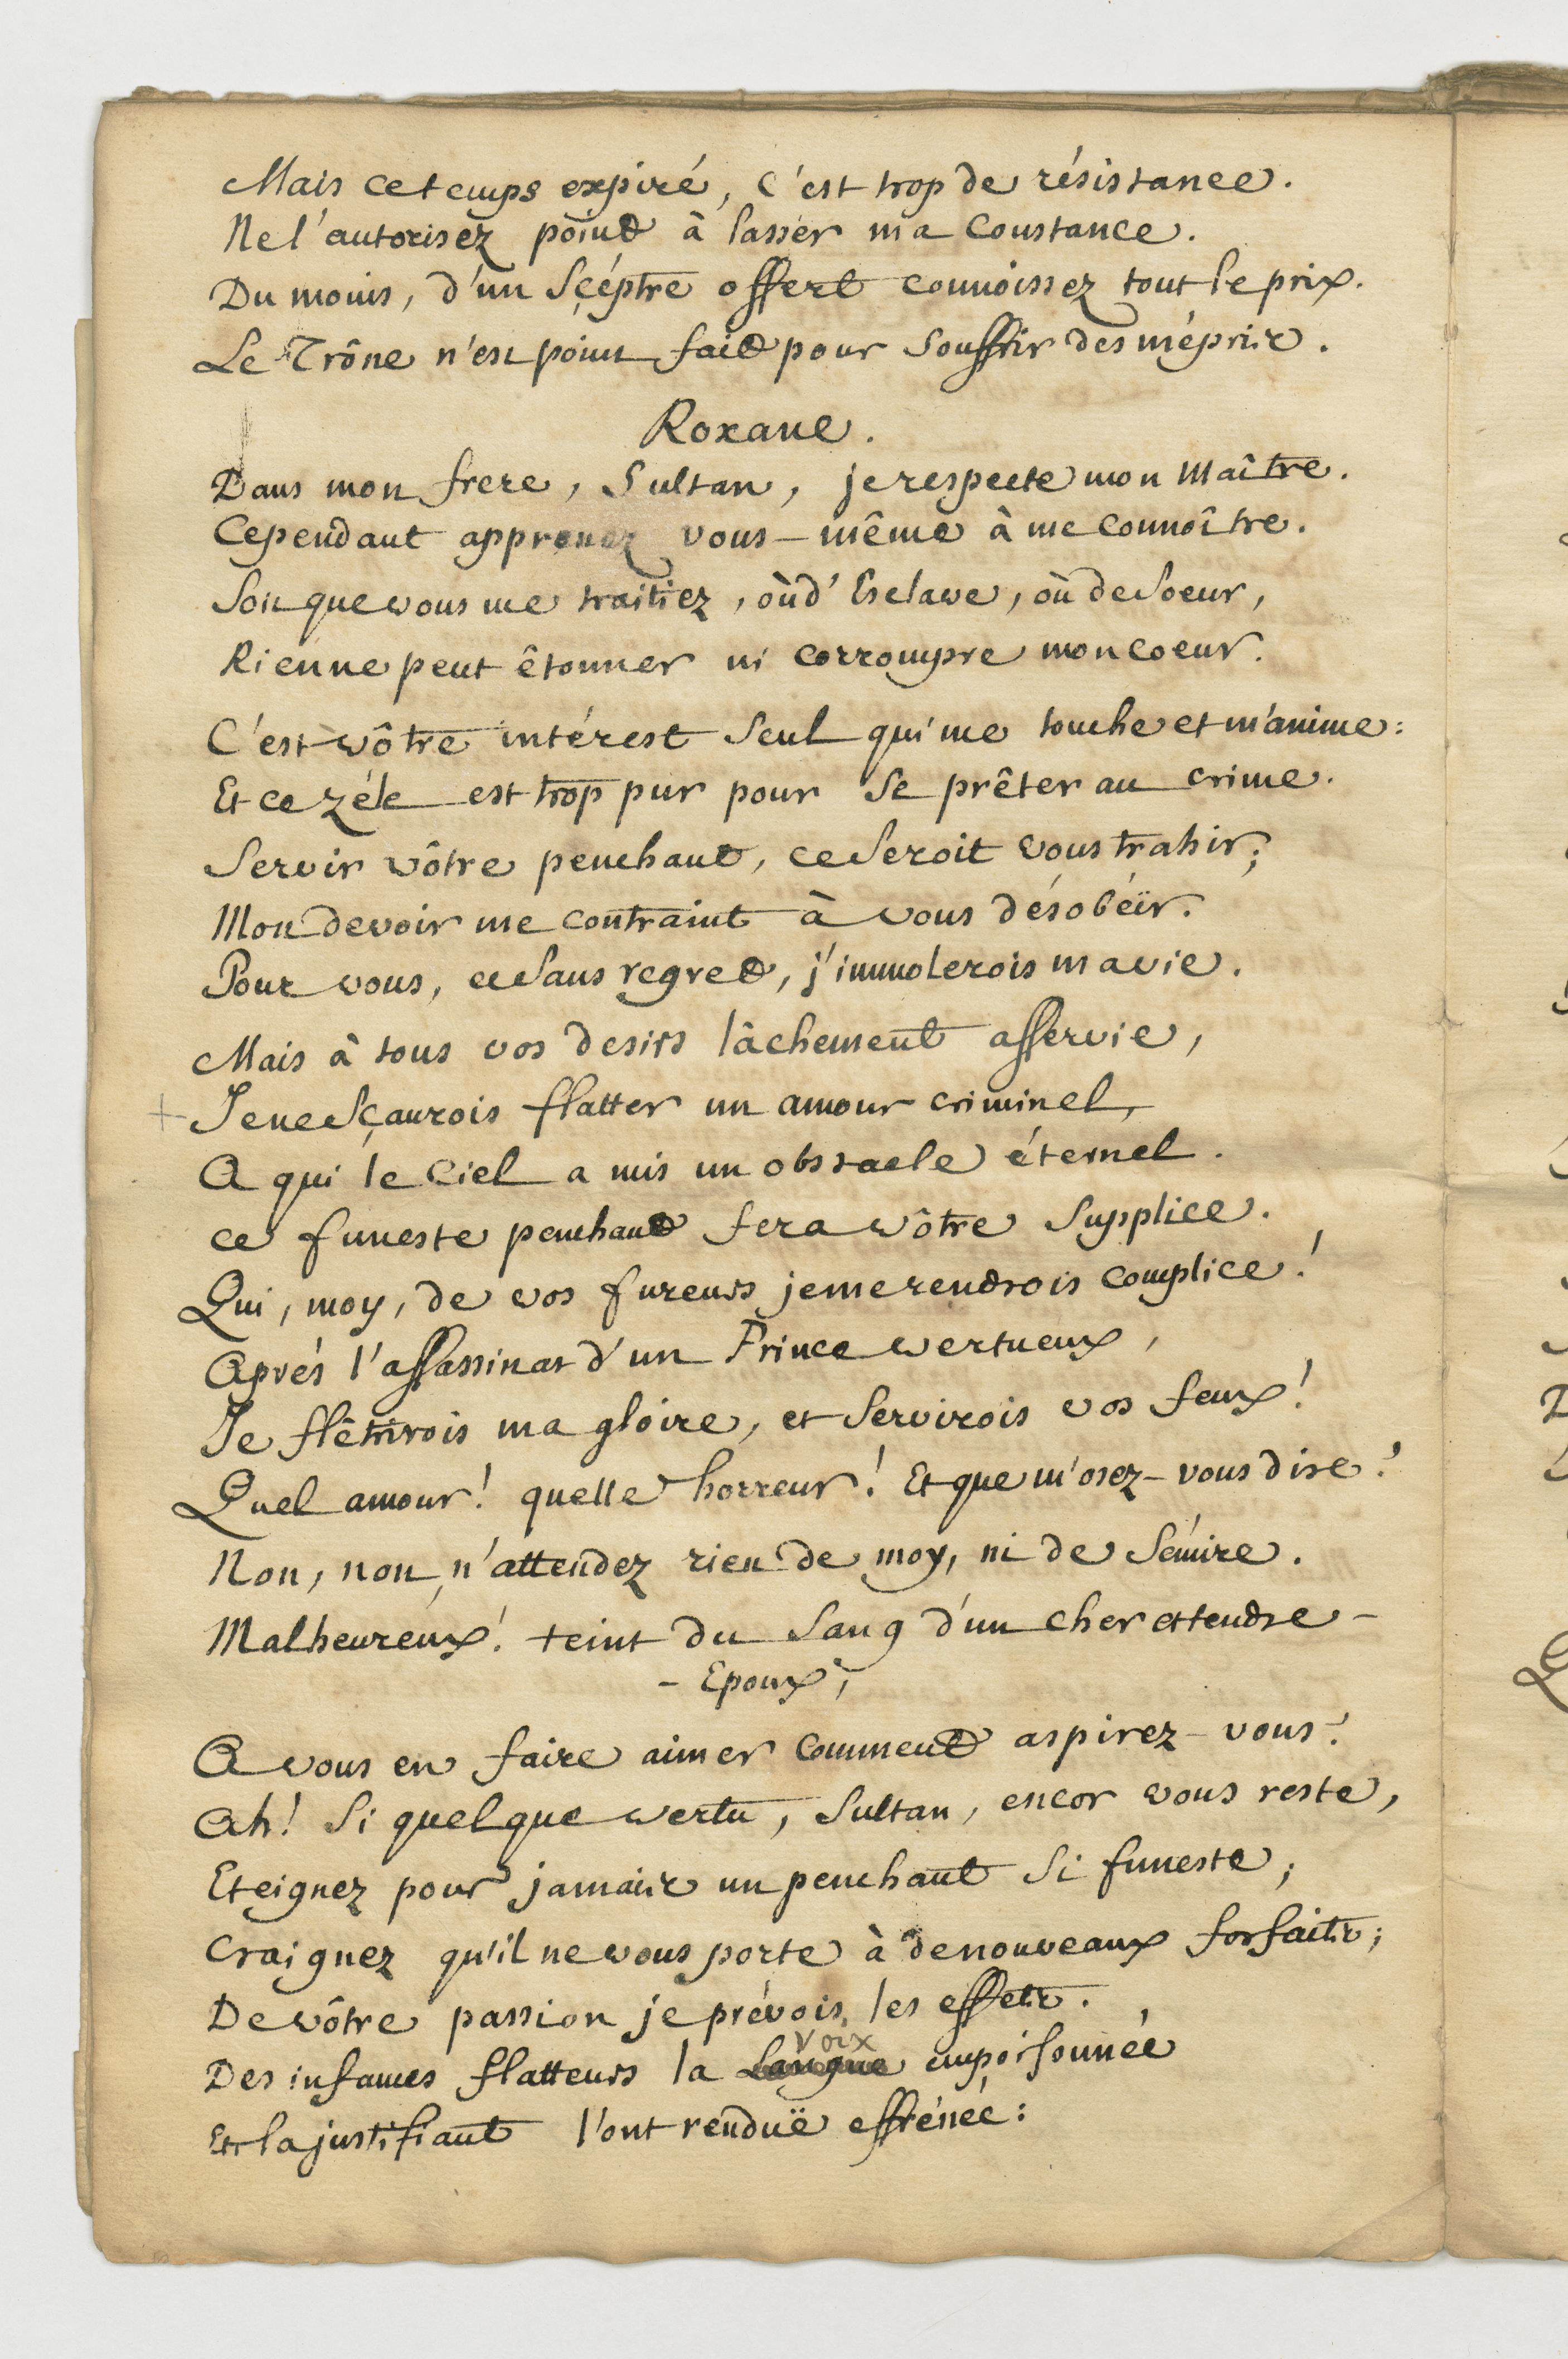 Mais ce temps expiré, c'est trop de résistance.
Ne l'autorisez point à lasser ma constance.
Du moins, d'un Scéptre offert connoissez tout le prix.
Le Trône n'est point fait pour souffrir des mépris.
Roxane.
Dans mon frere, Sultan, je respecte mon Maître.
Cependant apprenez vous-même à me connoître.
Soit que vous me traitiez, où d'Esclave, où de Soeur,
Rien ne peut êtonner ni corrompre mon coeur.
C'est vôtre intérest seul qui me touche et m'anime:
Et ce zéle est trop pur pour se prêter au crime.
Servir vôtre penchant, ce seroit vous trahir;
Mon devoir me contraint à vous désobéïr.
Pour vous, et sans regret, j'immolerois ma vie.
Mais à tous vos desirs lâchement asservie,
+ Je ne sçaurois flatter un amour criminel,
A qui le Ciel a mis un obstacle éternel.
ce funeste penchant fera vôtre supplice.
Qui, moy, de vos fureurs je me rendrois complice!
Aprés l'assassinat d'un Prince vertueux,
Je flêtrirois ma gloire, et servirois vos feux!
Quel amour! quelle horreur! Et que m'osez-vous dire?
Non, non, n'attendez rien de moy, ni de Sémire.
Malheureux! teint du sang d'un cher et tendre-
- Epoux,
A vous en faire aimer comment aspirez-vous?
Ah! Si quelque vertu, Sultan, encor vous reste,
Eteignez pour jamais un penchant si funeste;
Craignez qu'il ne vous porte à de nouveaux forfaits;
De vôtre passion je prévois les effets.
voix
Des infames flatteurs la Langue empoisonnée
Et la justifiant l'ont renduë effrénée: